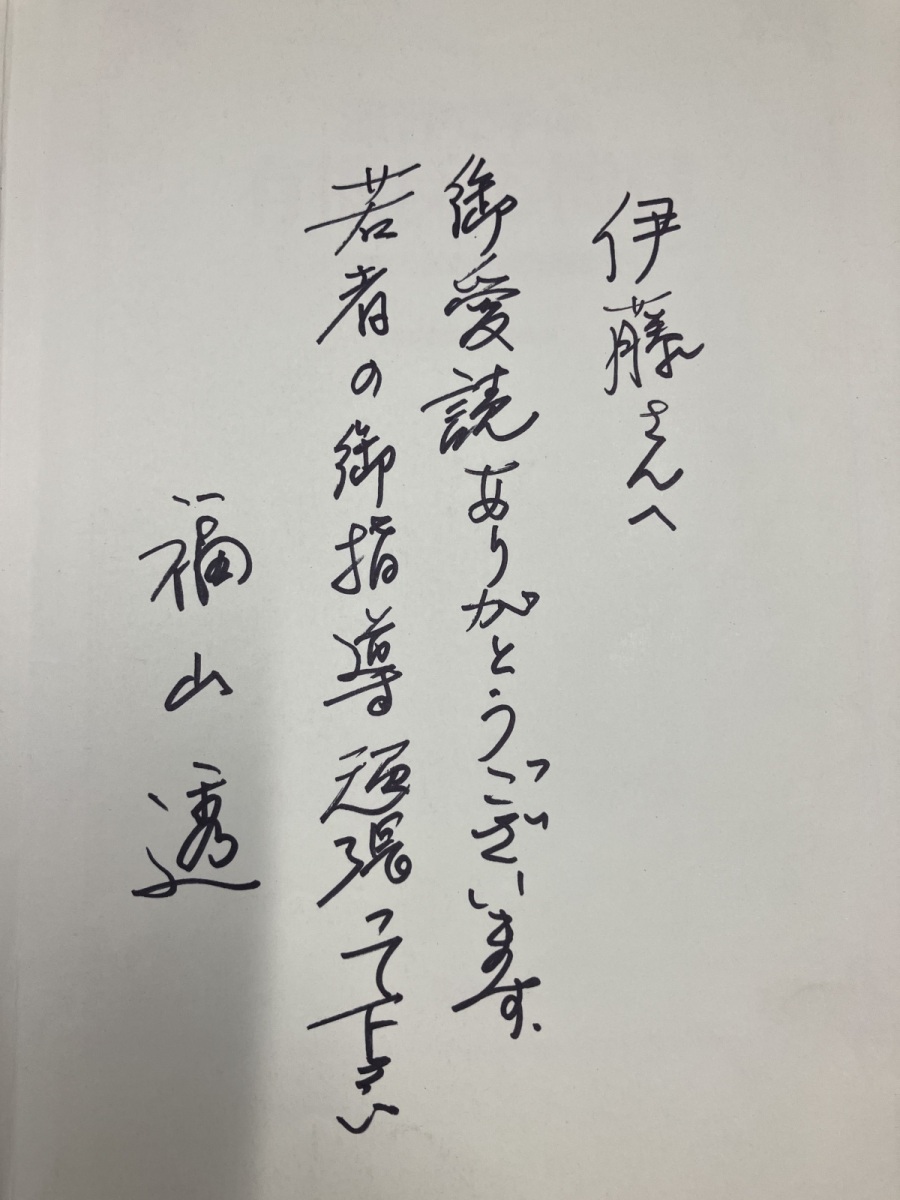 伊藤さんへ
御愛読ありがとうございます。
若者の御指導頑張って下さい
福山透